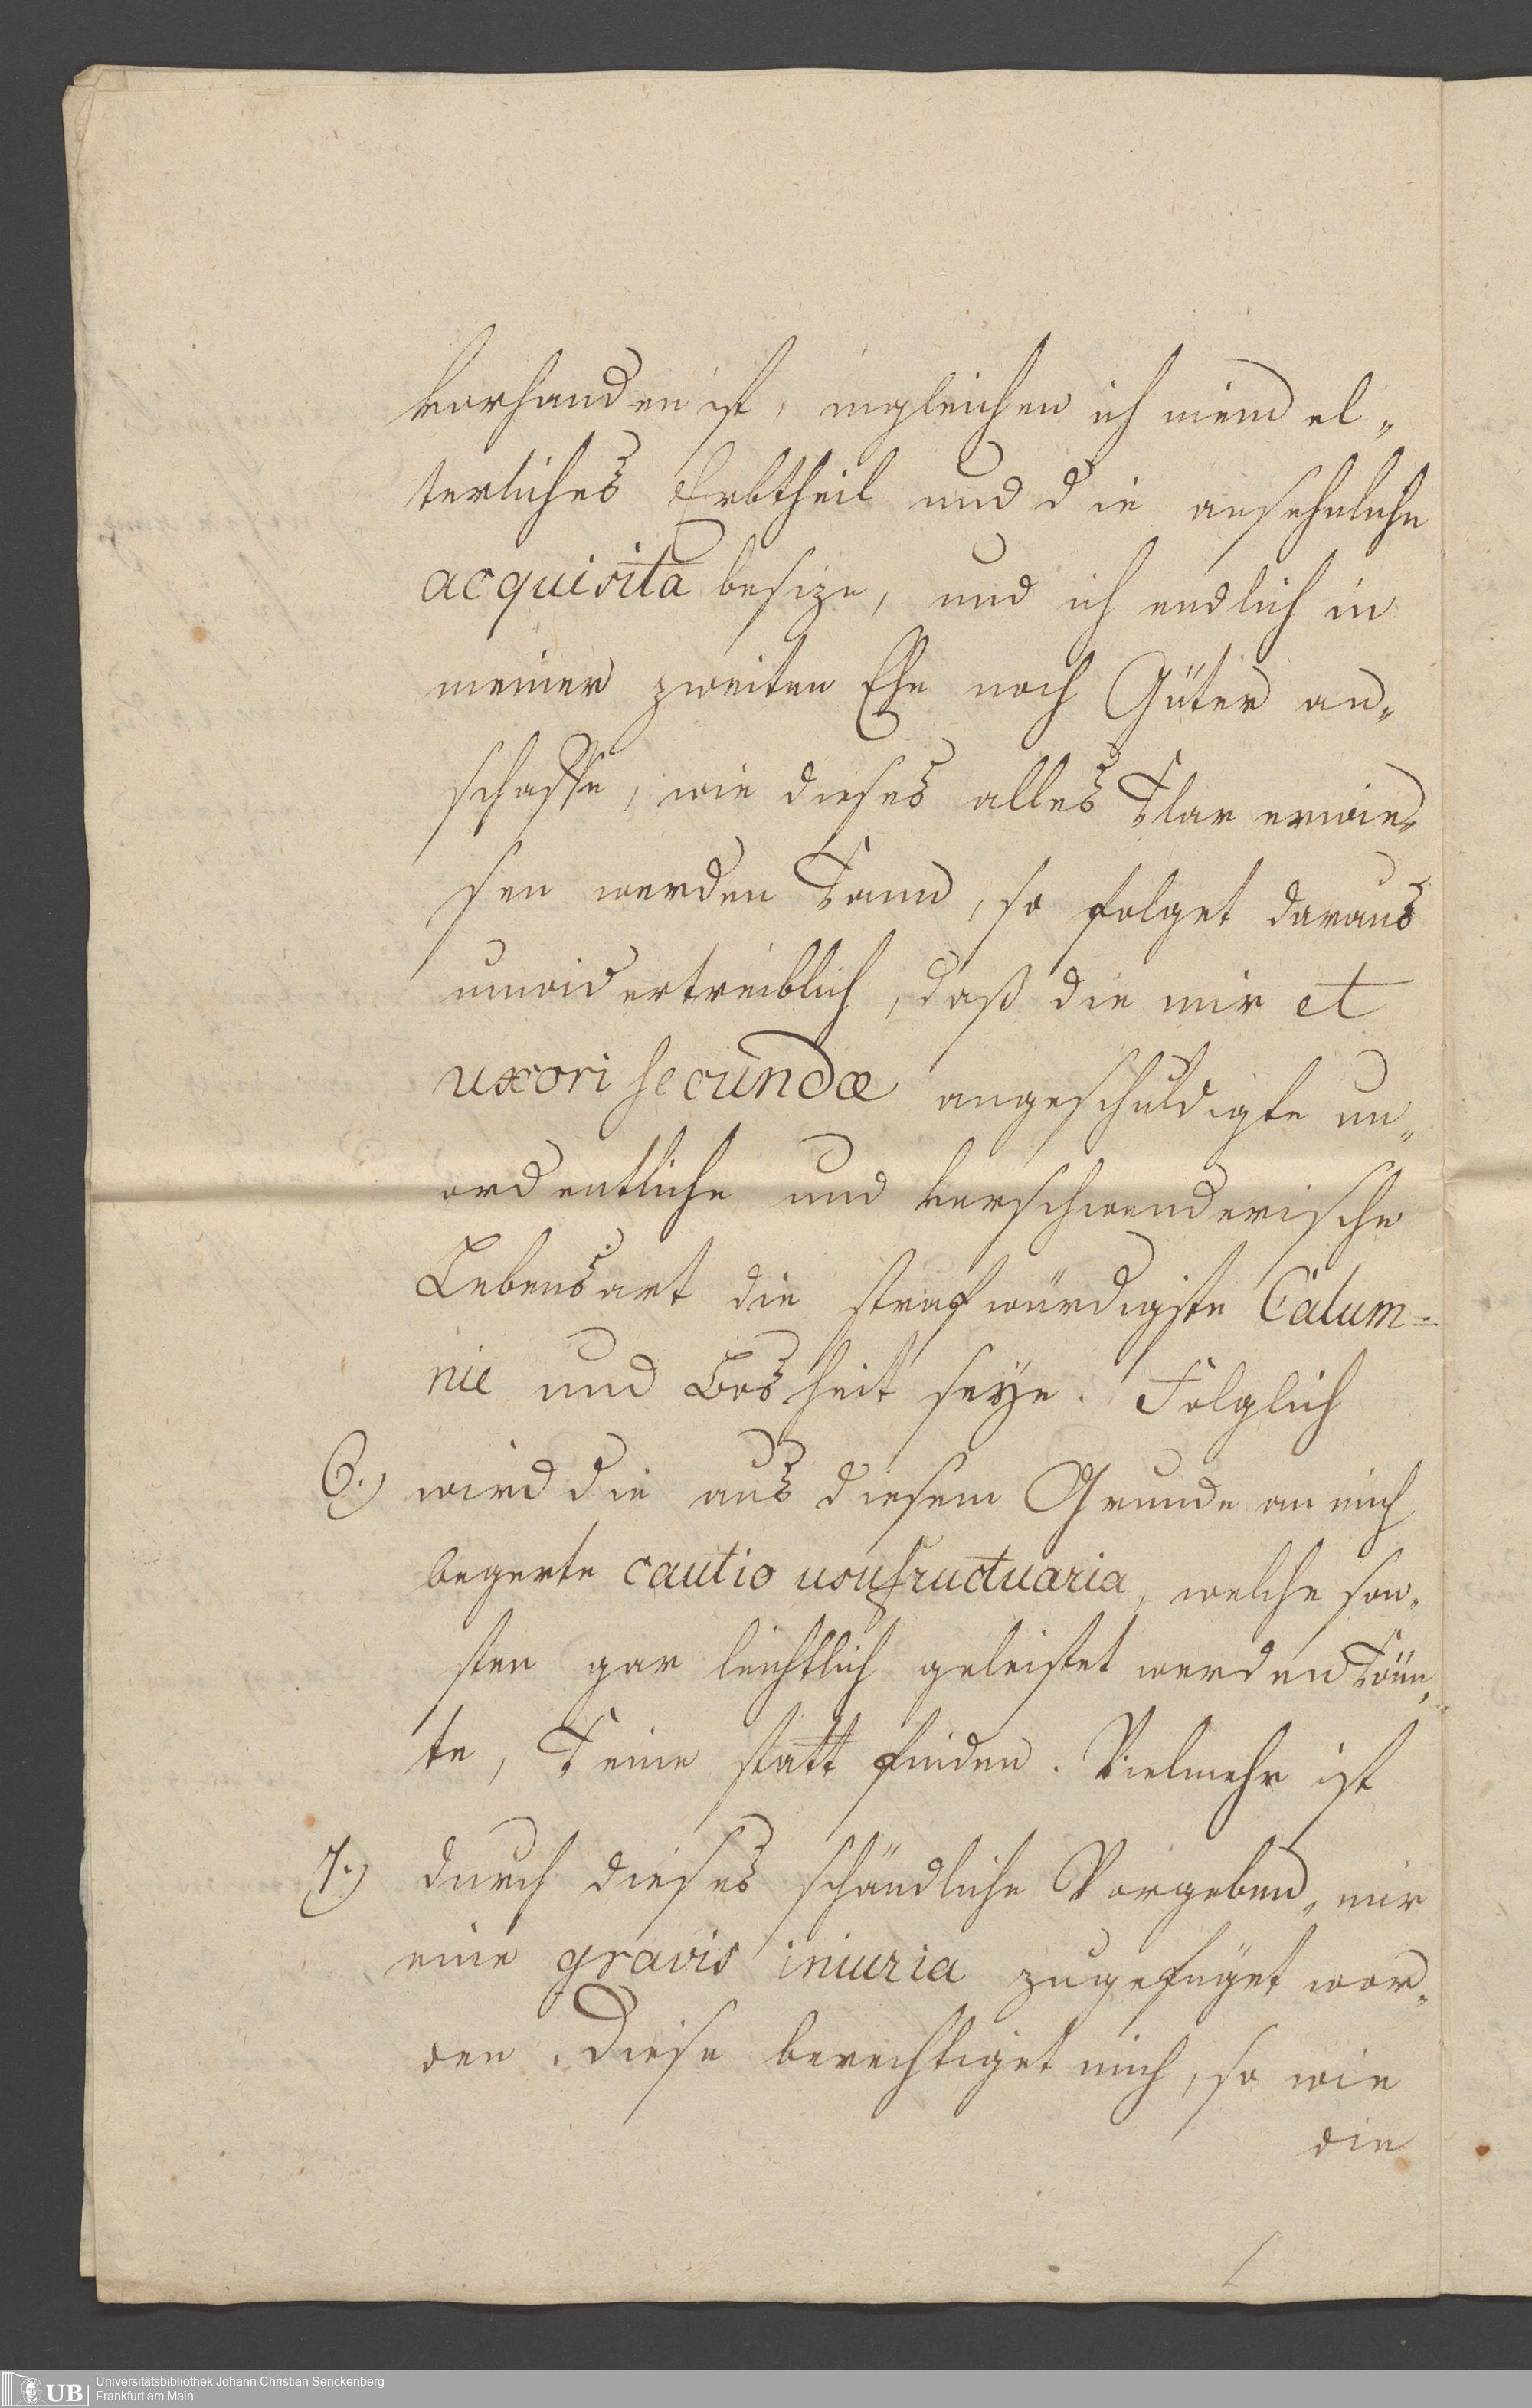 vorhanden ist, ingleichen ich mein el„
terliches Erbtheil und die ansehnliche
acquisita besize, und ich endlich in
meiner zweiten Ehe noch Güter an„
schaffe, wie dieses alles klar erwie„
sen werden kann, so folget daraus
unwidertreiblich, daß die mir et
uxori secundæ angeschuldigte un„
ordentliche und verschwenderische
Lebensart die strafwürdigste Calum=
nie und Bosheit seye. Folglich
6.) wird die aus diesem Grunde an mich
begerte cautio usufructuaria, welche son„
sten gar leichtlich geleistet werden kön„
te, keine statt finden. Vielmehr ist
7.) durch dieses schändliche Vorgeben, mir
eine gravis iniuria zugefüget wor„
den. Diese berechtiget mich, so wie
die
UB
Universitätsbibliothek Johann Christian Senckenberg
Frankfurt am Main